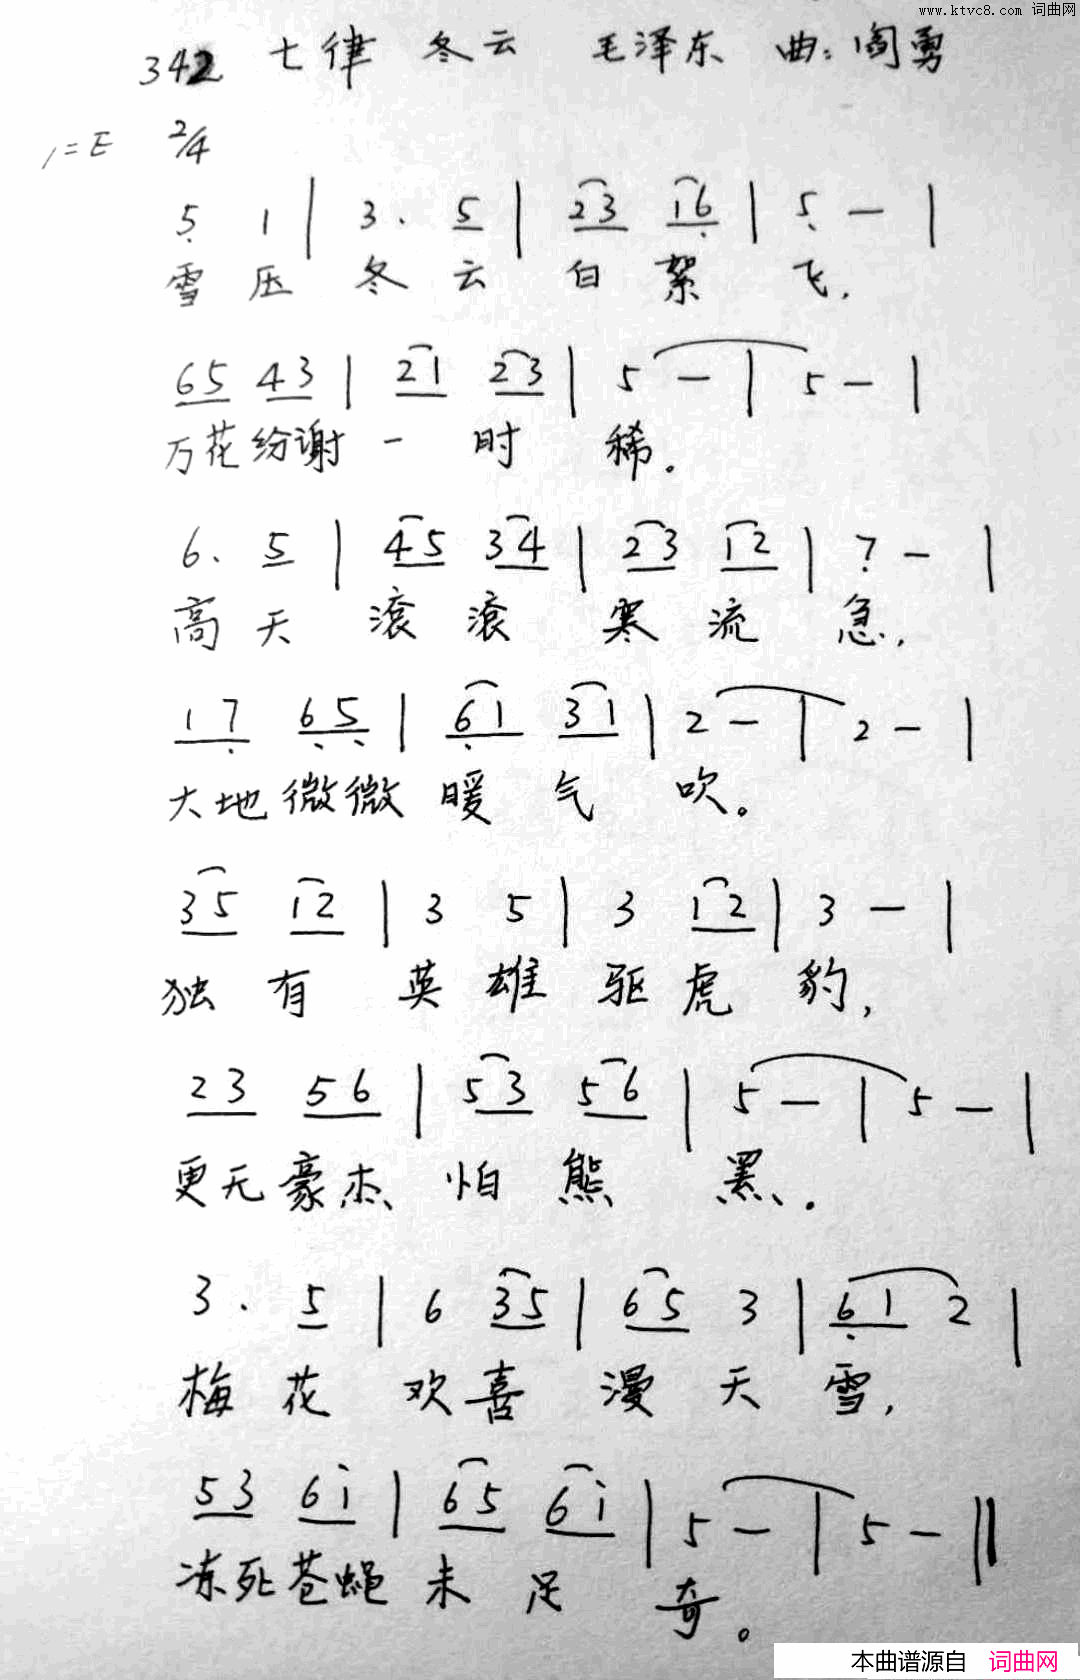 www.ktvc8.com 词曲网
342 七律 冬云 毛泽东 曲:阎勇
1=E 2/4
5̣ 1 | 3 . 5 | 23 16̣ | 5̣ — |
雪 压 冬 云 白 絮 飞,
65 43 | 21 23 | 5 — | 5 — |
万花纷谢 一 时 稀。
6. 5 | 45 34 | 23 12 | 7̣ — |
高 天 滚 滚 寒 流 急,
17̣ 6̣5̣ | 6̣1 31 | 2 — | 2 — |
大地微微 暖 气 吹。
35 12 | 3 5 | 3 12 | 3 — |
独 有 英 雄 驱 虎 豹,
23 56 | 53 56 | 5 — | 5 — |
更无豪杰 怕 熊 罴。
3 . 5 | 6 35 | 65 3 | 6̣1 2 |
梅 花 欢 喜 漫 天 雪,
53 6i | 65 6i | 5 — | 5 — ‖
冻死苍蝇 未 足 奇。
本曲谱源自 词曲网